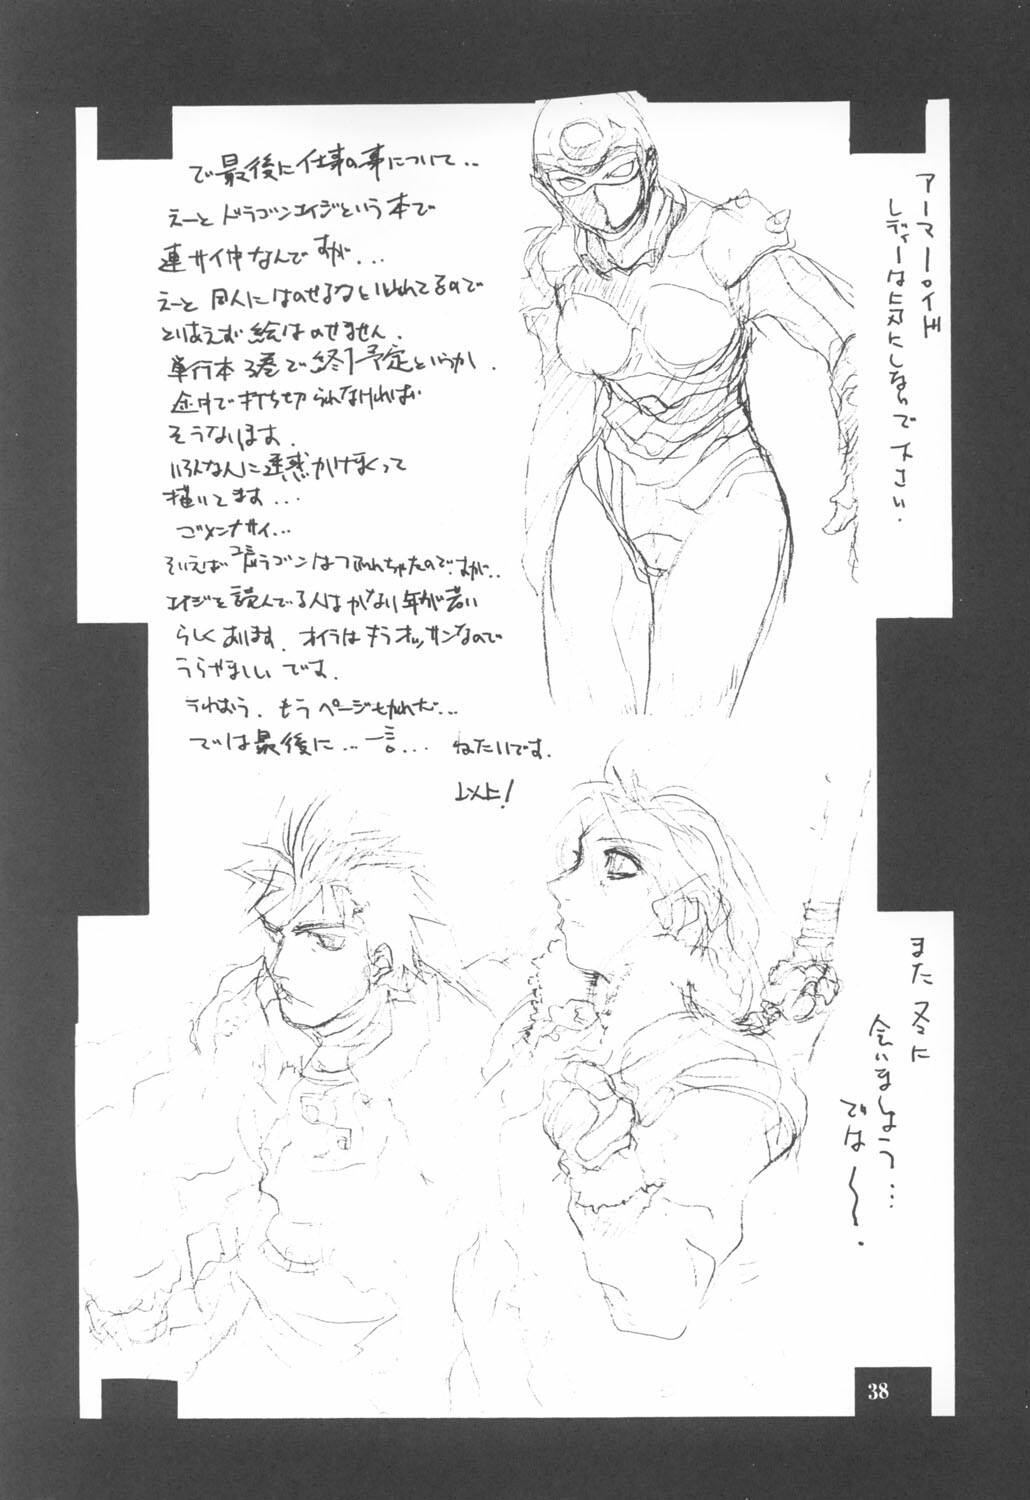 で最後に仕事の事について..
えーとドラゴンエイジという本で
連サイ中なんですが...
えーと同人にはのせるなといわれてるので
とりあえず絵はのせません.
単行本3巻で終了予定というか.
途中で打ち切られなければ
そうなります.
いろんな人に迷惑かけまくって
描いてます...
ゴメンナサイ...
そいえば コミドラゴンはつぶれちゃったのですが..
エイジを読んでる人はかなり年が若い
らしくあります. オイラはもうオッサンなので
うらやましいです.
うわおう. もうページ切れだ...
では最後に...一言... ねたいです.
以上!
アーマーロイド
レディーは気にしないで下さい.
また冬に
会いましょう...
では〜.
38